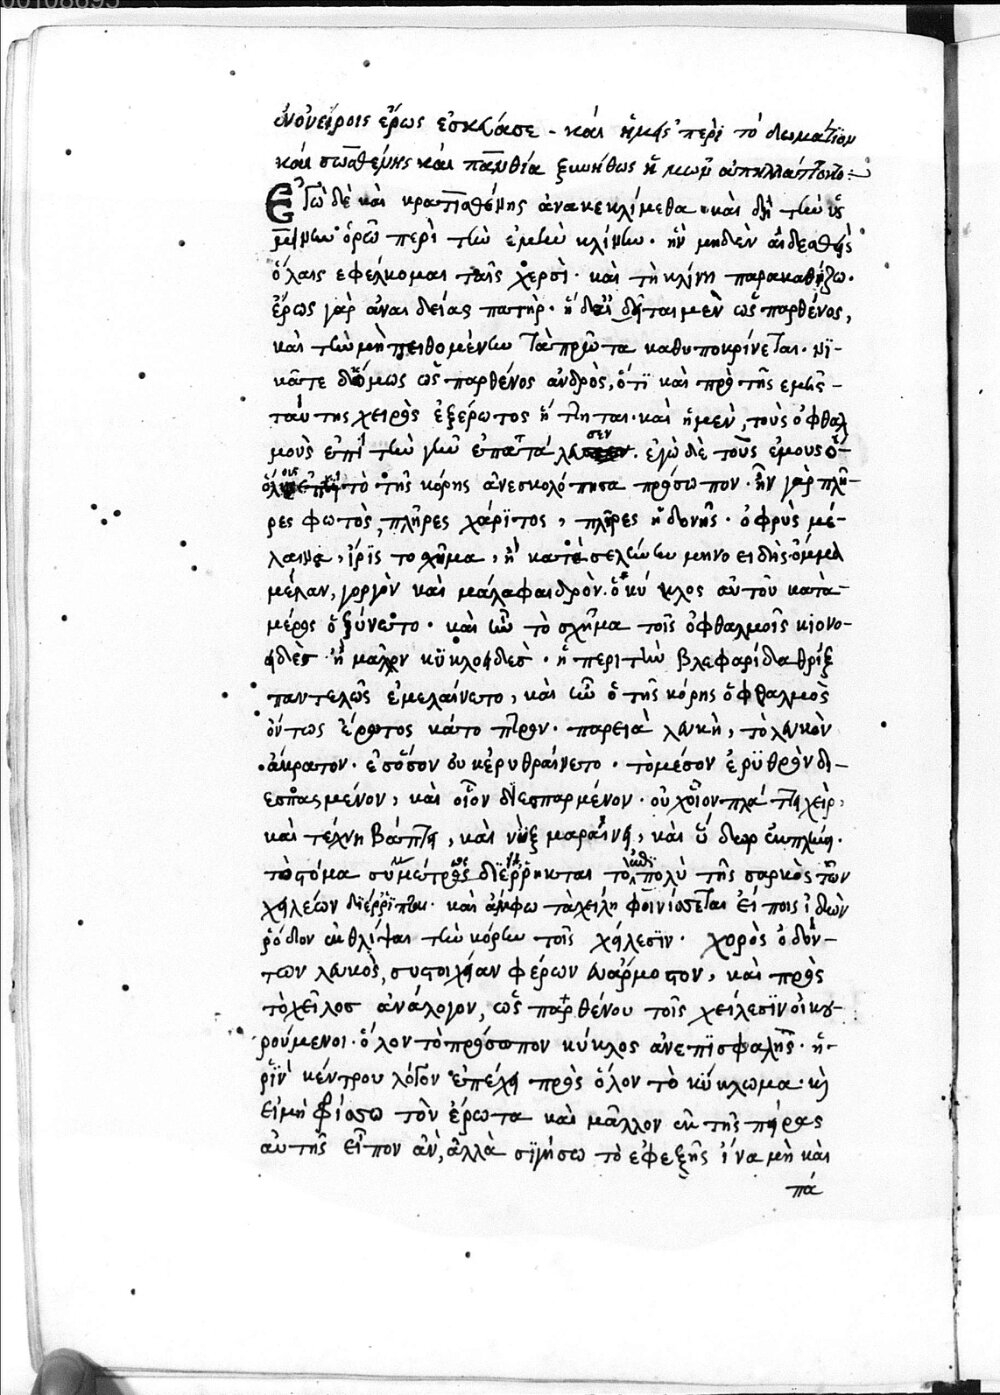 ὀνείροις ἔρως ἐσκεύασε. καὶ ἡμεῖς περὶ τὸ δωμάτιον
καὶ σωσθένης καὶ πανθία ξυνήθως ἡμῶν ἀπηλλάττοντο:
Ἐγὼ δὲ καὶ κρατισθένης ἀνακεκλίμεθα. καὶ δὴ τὴν ὑσ-
μίνην ὁρῶ περὶ τὴν ἐμὴν κλίνην. ἣν μηδὲν αἰδεσθεὶς
ὅλαις ἐφέλκομαι ταῖς χερσὶ. καὶ τῇ κλίνῃ παρακαθίζω.
ἔρως γὰρ ἀναιδείας πατήρ. ἡ δ' αἰδεῖται μὲν ὡς παρθένος,
καὶ τὴν μὴ πειθομένην τὰ πρῶτα καθυποκρίνεται. νι-
κᾶται δ' ὅμως ὡς παρθένος ἀνδρὸς, ὅτι καὶ πρὸ τῆς ἐμῆς
ταύτης χειρὸς ἐξ ἔρωτος ἥττηται. καὶ ἡ μὲν, τοὺς ὀφθαλ
μοὺς ἐπὶ τὴν γῆν ἐπαττάλευσεν. ἐγὼ δὲ τοὺς ἐμοὺς ὅ-
λους τὸ τῆς κόρης ἀνεσκολόπησα πρόσωπον. ἦν γὰρ πλῆ-
ρες φωτὸς, πλῆρες χάριτος, πλῆρες ἡδονῆς. ὀφρὺς μέ-
λαινα, ἶρις τὸ σχῆμα, ἢ κατὰ σελήνην μηνοειδῆς. ὄμμα
μέλαν, γοργὸν καὶ μάλα φαιδρὸν. ὁ κύκλος αὐτοῦ κατὰ
μέρος ὀξύνετο. καὶ ἦν τὸ σχῆμα τοῖς ὀφθαλμοῖς κωνο-
ειδὲς ἢ μᾶλλον κυκλοειδὲς. ἡ περὶ τὴν βλεφαρίδα θρὶξ
παντελῶς ἐμελαίνετο, καὶ ἦν ὁ τῆς κόρης ὀφθαλμὸς
ὄντως ἔρωτος κάτοπτρον. παρειὰ λευκὴ, τὸ λευκὸν
ἄκρατον. ἐς ὅσον οὐκ ἐρυθραίνετο. τὸ μέσον ἐρυθρὸν δι-
εσπασμένον, καὶ οἷον διεσπαρμένον. οὐχ οἷον πλάττει χεὶρ,
καὶ τέχνη βάπτει, καὶ νὺξ μαραίνει, καὶ ὕδωρ ἐκπλύνει.
τὸ στόμα συμμέτρως διέρρηκται τὸ πολὺ τῆς σαρκὸς τῶν
χειλέων διέρριπται. καὶ ἄμφω τὰ χείλη φοινίσσεται εἴποις ἰδὼν
ῥόδον ἐκθλίψαι τὴν κόρην τοῖς χείλεσιν. χορὸς ὀδόν-
των λευκὸς, συστοιχίαν φέρων εὐάρμοστον, καὶ πρὸς
τὸ χεῖλος ἀνάλογον, ὡς παρθένου τοῖς χείλεσιν οἰκου-
ρούμενοι. ὅλον τὸ πρόσωπον κύκλος ἀνεπισφαλῆς. ἡ
ῥὶν κέντρου λόγον ἐπέχει πρὸς ὅλον τὸ κύκλωμα. κὶ
εἰ μὴ τὸν ἔρωτα καὶ μᾶλλον ἐκ τῆς πείρας
αὐτῆς εἶπον ἂν, ἀλλὰ σιγήσω τὸ ἐφεξῆς ἵνα μὴ καὶ
πά